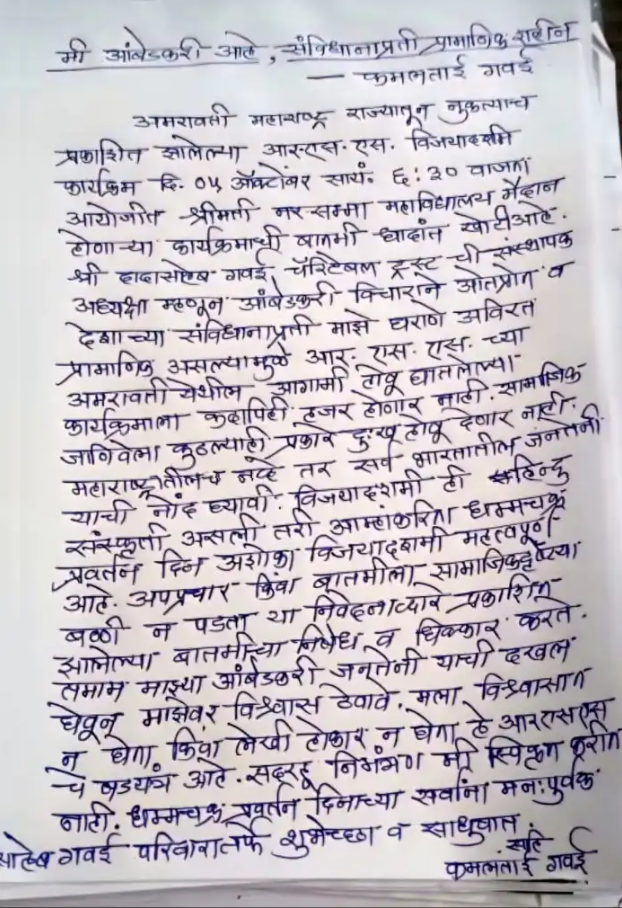 मी आंबेडकरी आहे, संविधानाप्रती प्रामाणिक राहीन
— कमलताई गवई
अमरावती महाराष्ट्र राज्यातून नुकत्याच
प्रकाशित झालेल्या आर.एस.एस. विजयादशमी
कार्यक्रम दि. ०५ ऑक्टोबर सायं. ६:३० वाजता
आयोजीत श्रीमती नरसम्मा महाविद्यालय मैदान
होणाऱ्या कार्यक्रमाची बातमी धादांत खोटी आहे.
श्री दादासाहेब गवई चॅरिटेबल ट्रस्ट ची संस्थापक
अध्यक्षा म्हणून आंबेडकरी विचाराने ओतप्रोत व
देशाच्या संविधानाप्रती माझे घराणे अविरत
प्रामाणिक असल्यामुळे आर. एस. एस. च्या
अमरावती येथील आगामी होवू घातलेल्या
कार्यक्रमाला कदापिही हजर होणार नाही. सामाजिक
जाणिवेला कुठल्याही प्रकारे दुःख होवू देणार नाही.
महाराष्ट्रातीलच नव्हे तर सर्व भारतातील जनतेनी
याची नोंद घ्यावी. विजयादशमी ही हिन्दु
संस्कृती असली तरी आम्हांकरिता धम्मचक्र
प्रवर्तन दिन अशोका विजयादशमी महत्वपूर्ण
आहे. अपप्रचार किंवा बातमीला सामाजिकदृष्ट्या
बळी न पडता या निवेदनाव्दारे प्रकाशित
झालेल्या बातमीचा निषेध व धिक्कार करते.
तमाम माझ्या आंबेडकरी जनतेनी याची दखल
घेवून माझेवर विश्वास ठेवावे. मला विश्वासात
न घेता किंवा लेखी होकार न घेता हे आरएसएस
चे षडयंत्र आहे. सदरहू निमंत्रण मी स्विकृत करीत
नाही. धम्मचक्र प्रवर्तन दिनाच्या सर्वांना मनःपुर्वक
गवई परिवारातर्फे शुभेच्छा व साधुवाद.
सही
कमलताई गवई